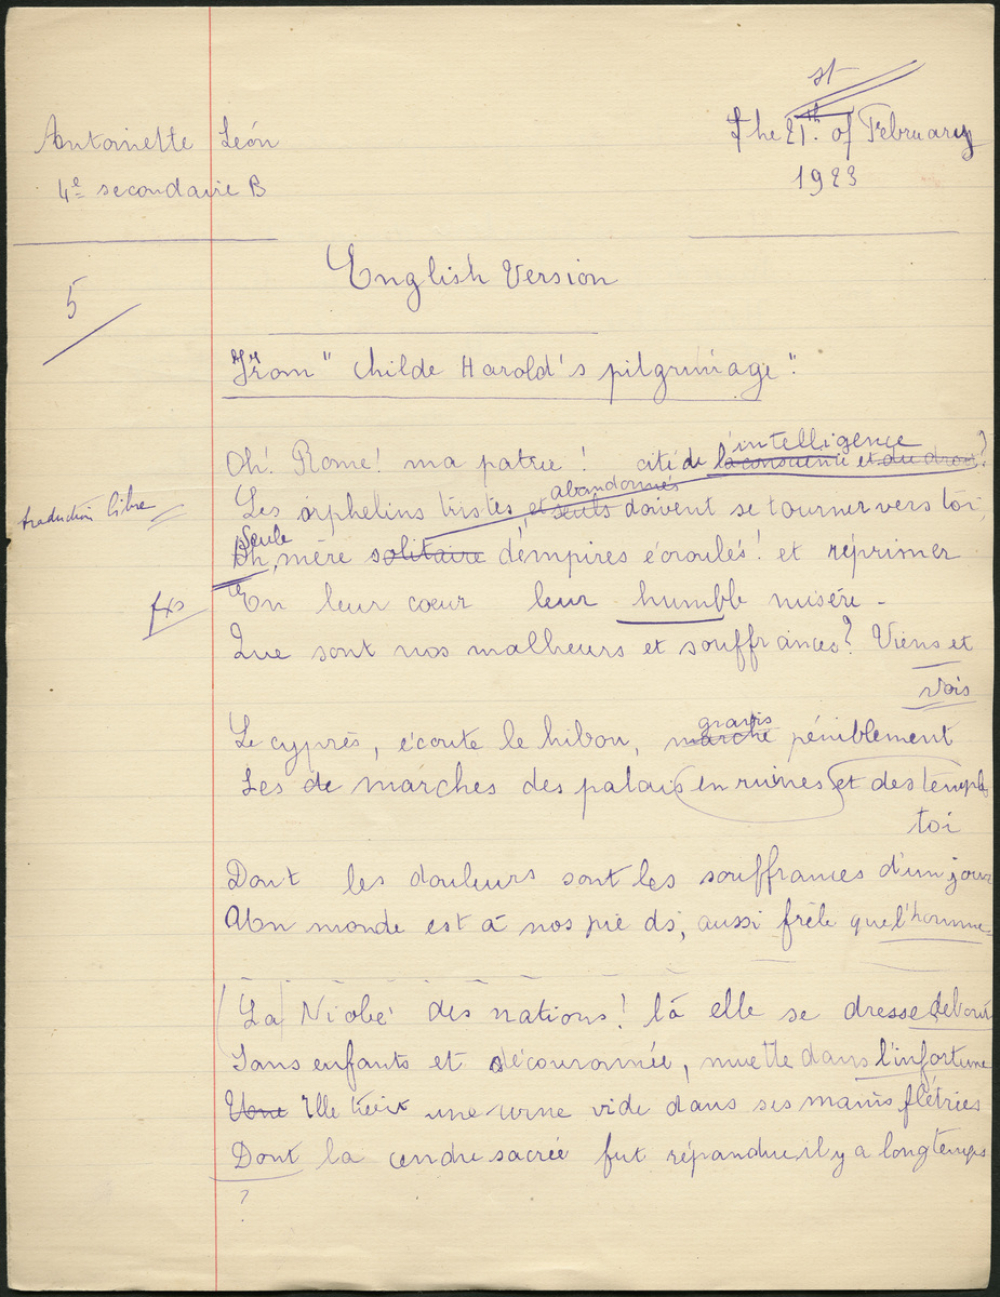 Antoinette León
4e secondaire B
st
The 21th. of February
1923
English Version
5
From "Childe Harold's pilgrimage".
intelligence
Oh! Rome! ma patrie! cité de la conscience et du droit?
abandonnés
traduction libre
Les orphelins tristes, et seuls doivent se tourner vers toi,
Seule
Oh, mère solitaire d'empires écroulés! et réprimer
En leur cœur leur humble misère -
Que sont nos malheurs et souffrances? Viens et
vois
gravis
Le cyprès, écoute le hibou, marche péniblement
Les de marches des palais en ruines et des temples
toi
Dont les douleurs sont les souffrances d'un jour
Un monde est à nos pieds, aussi frêle que l'homme.
La Niobé des nations! là elle se dresse debout
Sans enfants et découronnée, muette dans l'infortune
Une Elle tient une urne vide dans ses mains flétries
Dont la cendre sacrée fut répandue il y a longtemps
?